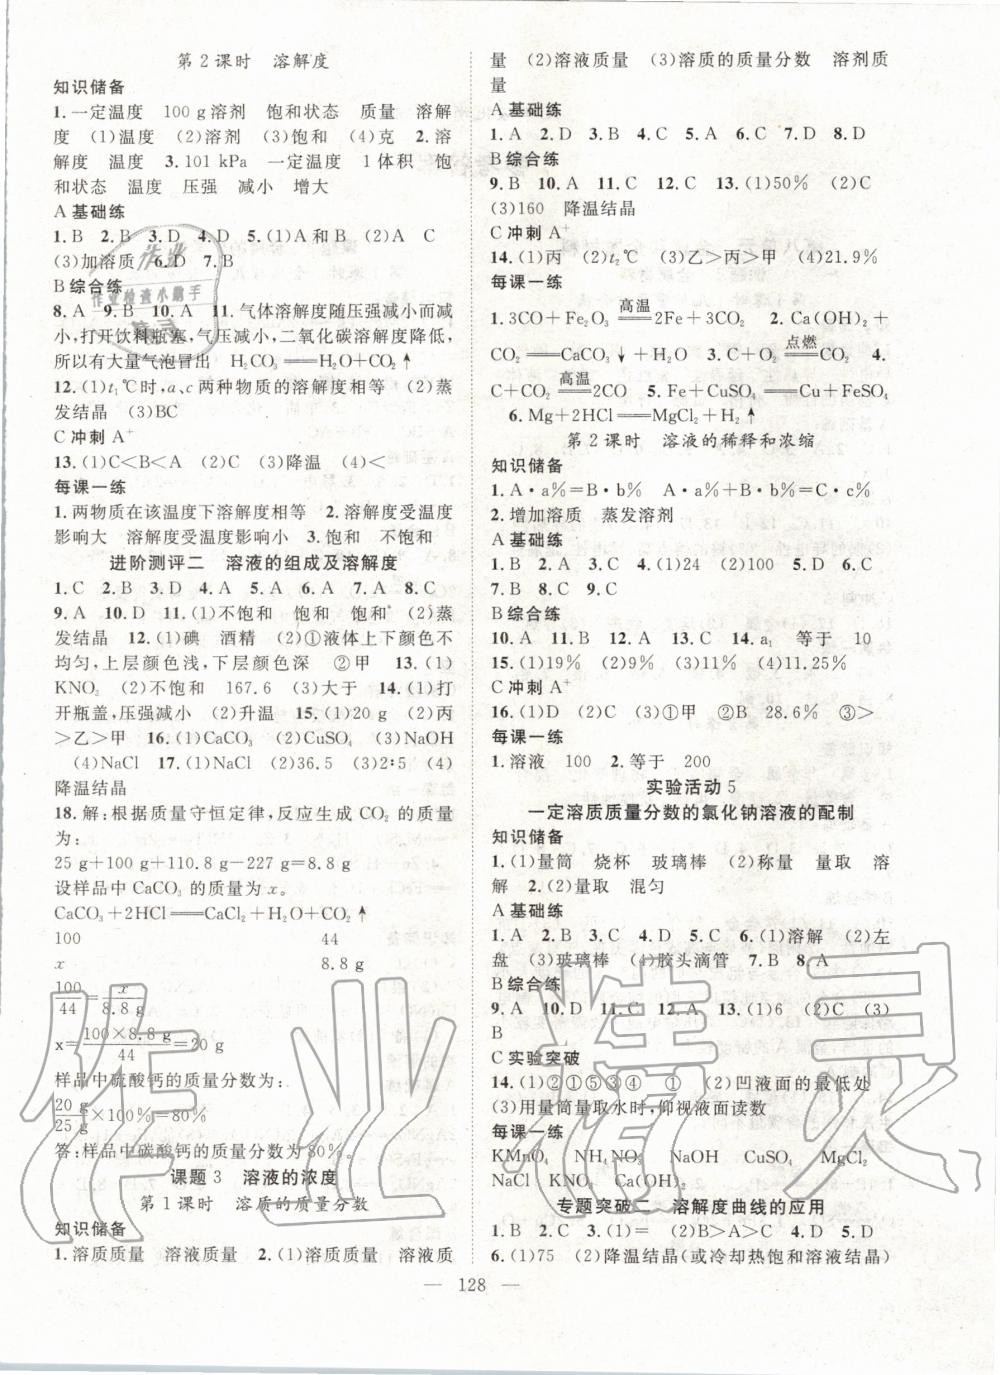 第2课时 溶解度
知识储备
1.一定温度 100 g溶剂 饱和状态 质量 溶解
度 (1)温度 (2)溶剂 (3)饱和 (4)克 2.溶
解度 温度 3.101 kPa 一定温度 1体积 饱
和状态 温度 压强 减小 增大
A 基础练
1.B 2.B 3.D 4.D 5.(1)A和B (2)A C
(3)加溶质 6.D 7.B
B 综合练
8.A 9.B 10.A 11.气体溶解度随压强减小而减
小,打开饮料瓶塞,气压减小,二氧化碳溶解度降低,
所以有大量气泡冒出 H₂CO₃══H₂O+CO₂↑
12.(1)t₁℃时,a、c两种物质的溶解度相等 (2)蒸
发结晶 (3)BC
C 冲刺 A⁺
13.(1)C<B<A (2)C (3)降温 (4)<
每课一练
1.两物质在该温度下溶解度相等 2.溶解度受温度
影响大 溶解度受温度影响小 3.饱和 不饱和
进阶测评二 溶液的组成及溶解度
1.C 2.B 3.D 4.A 5.A 6.A 7.A 8.C
9.A 10.D 11.(1)不饱和 饱和 饱和 (2)蒸
发结晶 12.(1)碘 酒精 (2)①液体上下颜色不
均匀,上层颜色浅,下层颜色深 ②甲 13.(1)
KNO₃ (2)不饱和 167.6 (3)大于 14.(1)打
开瓶盖,压强减小 (2)升温 15.(1)20 g (2)丙
>乙>甲 16.(1)CaCO₃ (2)CuSO₄ (3)NaOH
(4)NaCl 17.(1)NaCl (2)36.5 (3)2∶5 (4)
降温结晶
18.解:根据质量守恒定律,反应生成 CO₂ 的质量
为:
25 g+100 g+110.8 g-227 g=8.8 g
设样品中 CaCO₃ 的质量为 x。
CaCO₃+2HCl══CaCl₂+H₂O+CO₂↑
100 44
x 8.8 g
100/44=x/8.8 g
x=100×8.8 g/44=20 g
样品中硫酸钙的质量分数为:
20 g/25 g×100%=80%
答:样品中碳酸钙的质量分数为80%。
课题3 溶液的浓度
第1课时 溶质的质量分数
知识储备
1.溶质质量 溶液质量 2.(1)溶质质量 溶液质
量 (2)溶液质量 (3)溶质的质量分数 溶剂质
量
A 基础练
1.A 2.D 3.B 4.C 5.C 6.C 7.D 8.D
B 综合练
9.B 10.A 11.C 12.C 13.(1)50% (2)C
(3)160 降温结晶
C 冲刺 A⁺
14.(1)丙 (2)t₂℃ (3)乙>丙>甲 (4)21.9%
每课一练
1.3CO+Fe₂O₃ 高温══ 2Fe+3CO₂ 2.Ca(OH)₂+
CO₂══CaCO₃↓+H₂O 3.C+O₂ 点燃══ CO₂ 4.
C+CO₂ 高温══ 2CO 5.Fe+CuSO₄══Cu+FeSO₄
6.Mg+2HCl══MgCl₂+H₂↑
第2课时 溶液的稀释和浓缩
知识储备
1.A·a%=B·b% A·a%+B·b%=C·c%
2.增加溶质 蒸发溶剂
A 基础练
1.A 2.B 3.D 4.(1)24 (2)100 5.D 6.C
7.B 8.C 9.C
B 综合练
10.A 11.B 12.A 13.C 14.a₁ 等于 10
15.(1)19% (2)9% (3)11% (4)11.25%
C 冲刺 A⁺
16.(1)D (2)C (3)①甲 ②B 28.6% ③>
每课一练
1.溶液 100 2.等于 200
实验活动5
一定溶质质量分数的氯化钠溶液的配制
知识储备
1.(1)量筒 烧杯 玻璃棒 (2)称量 量取 溶
解 2.(2)量取 混匀
A 基础练
1.A 2.B 3.C 4.D 5.C 6.(1)溶解 (2)左
盘 (3)玻璃棒 (4)胶头滴管 7.B 8.A
B 综合练
9.A 10.D 11.C 12.A 13.(1)6 (2)C (3)
B
C 实验突破
14.(1)②①⑤③④ ① (2)凹液面的最低处
(3)用量筒量取水时,仰视液面读数
每课一练
KMnO₄ NH₄NO₃ NaOH CuSO₄ MgCl₂
NaCl KNO₃ Ca(OH)₂
专题突破二 溶解度曲线的应用
1.B 2.C 3.(1)= (2)B>A>C 4.D 5.D
6.(1)75 (2)降温结晶(或冷却热饱和溶液结晶)
— 128 —
作业精灵
作业
作业检查小助手
精灵